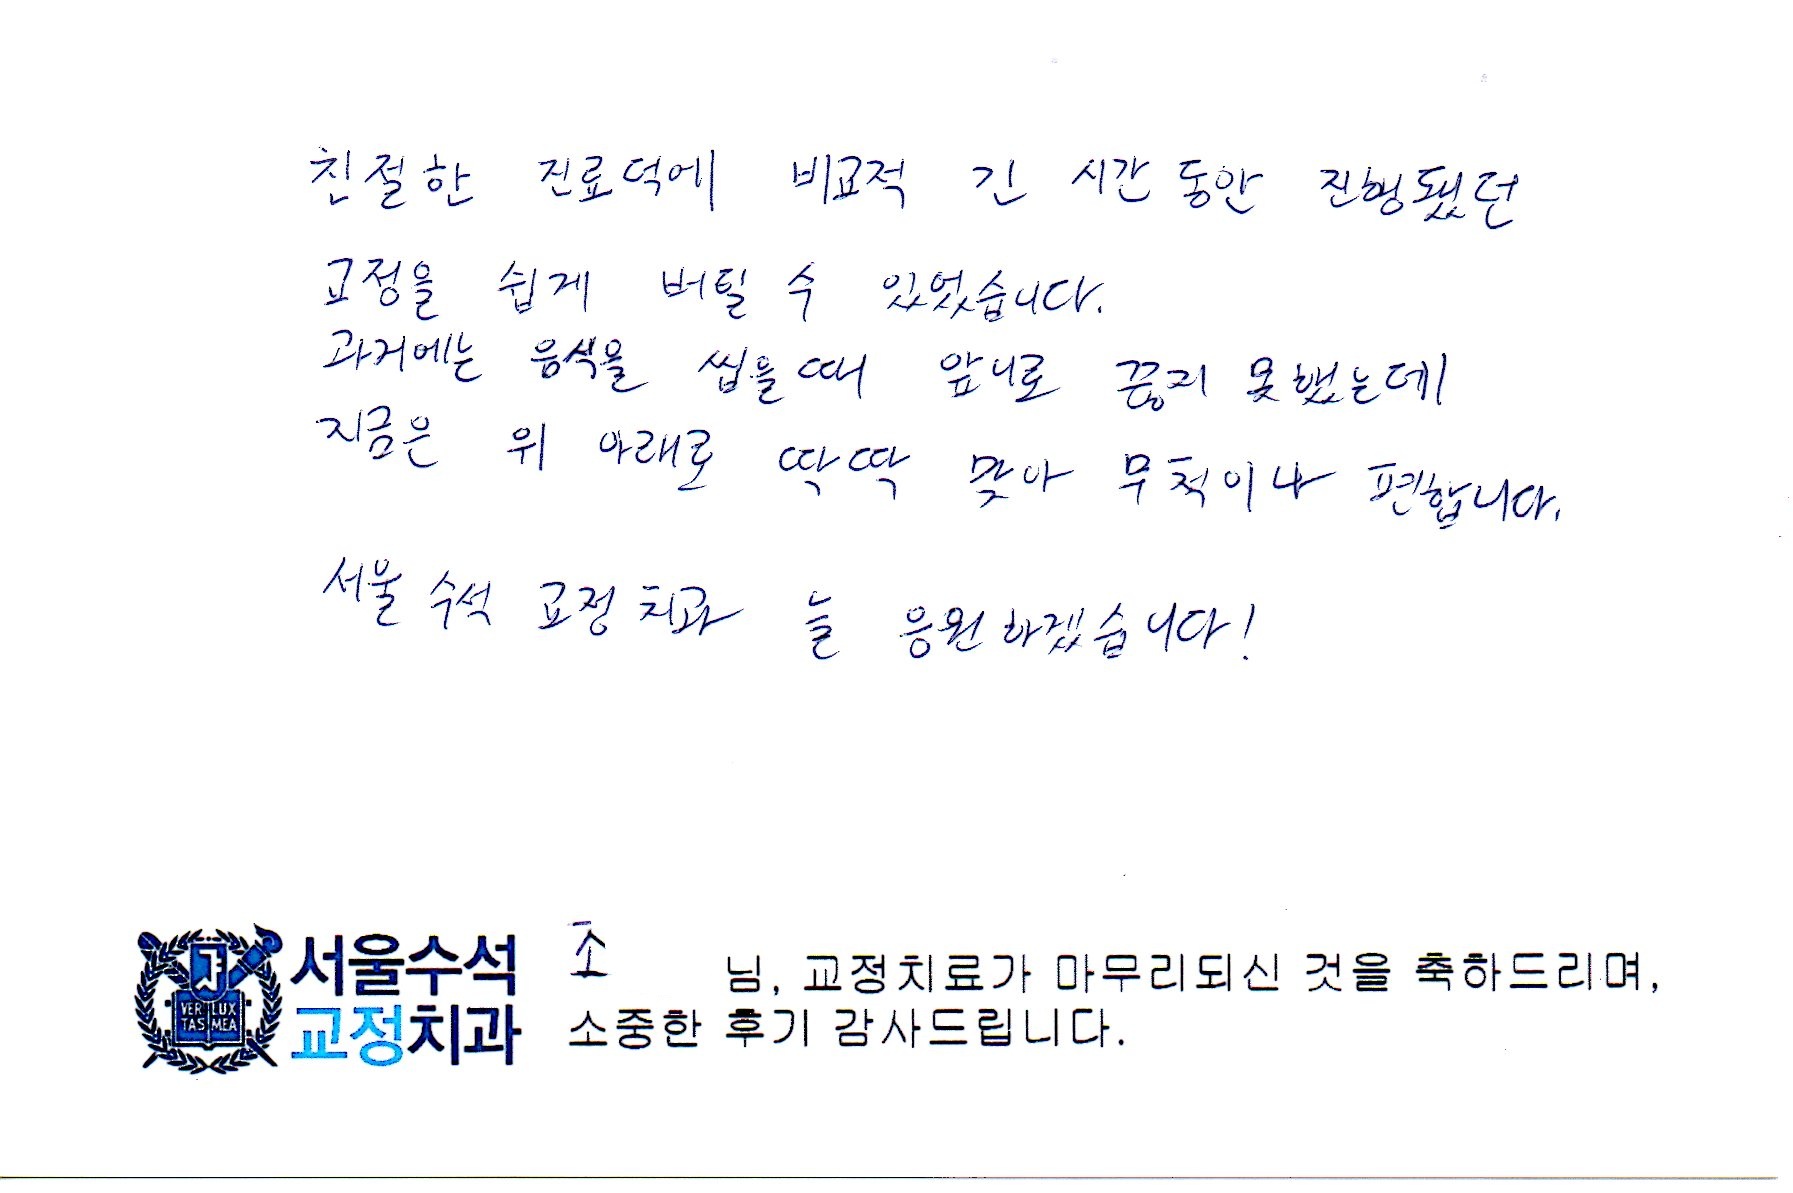 친절한 진료덕에 비교적 긴 시간 동안 진행됐던
교정을 쉽게 버틸 수 있었습니다.
과거에는 음식을 씹을때 앞니로 끊지 못했는데
지금은 위 아래로 딱딱 맞아 무척이나 편합니다.
서울 수석 교정 치과 늘 응원하겠습니다!
서울수석
교정치과
VERI LUX
TAS MEA
조 님, 교정치료가 마무리되신 것을 축하드리며,
소중한 후기 감사드립니다.